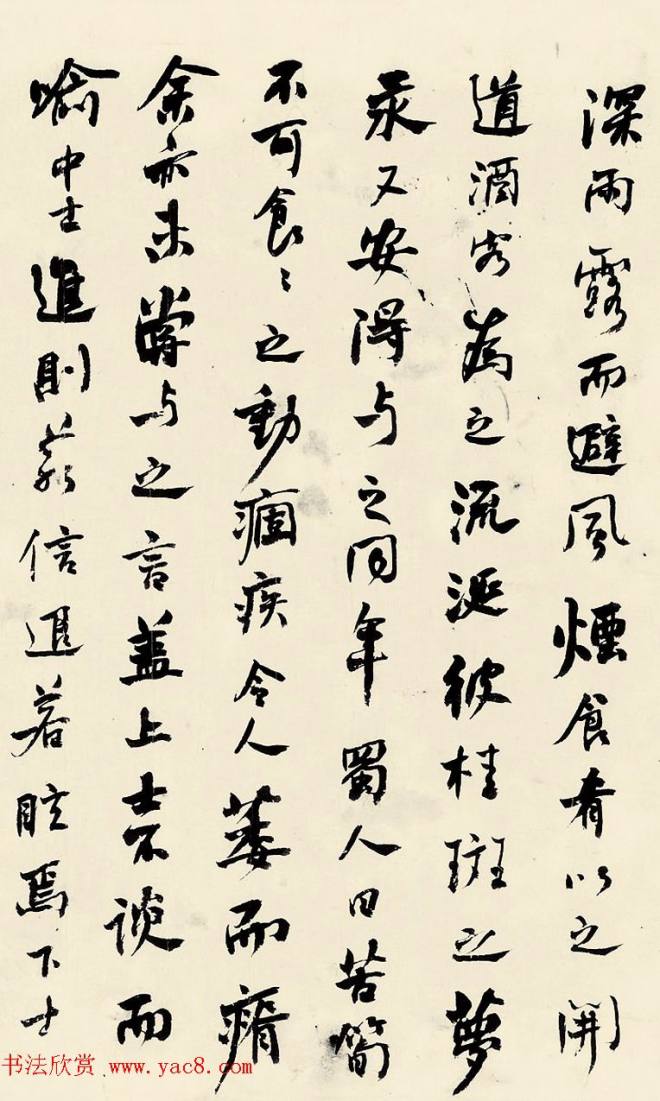 深雨露而避風煙食肴以之開
道酒客為之流涎彼桂斑之夢
汞又安得与之同年蜀人曰苦筍
不可食食〻之動痼疾令人萎而瘠
余亦未嘗与之言盖上士不談而
喻中士進則若信退若眩焉下士
书法欣赏 www.yac8.com